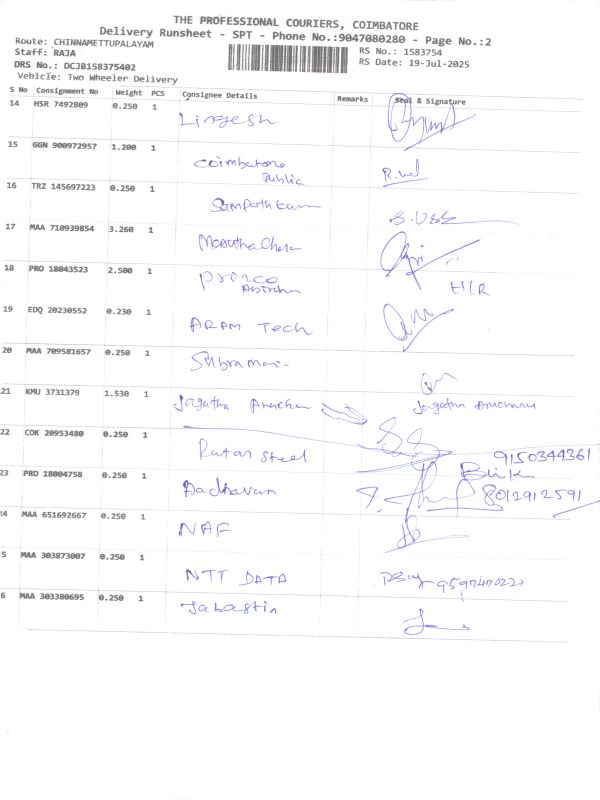 THE PROFESSIONAL COURIERS, COIMBATORE
Delivery Runsheet - SPT - Phone No.:9047080280 - Page No.:2
Route: CHINNAMETTUPALAYAM
Staff: RAJA
DRS No.: DCJB158375402
Vehicle: Two Wheeler Delivery
RS No.: 1583754
RS Date: 19-Jul-2025
S No Consignment No Weight PCS Consignee Details Remarks Seal & Signature
14 HSR 7492809 0.250 1 Lingesh
15 GGN 900972957 1.200 1 Coimbatore Public
16 TRZ 145697223 0.250 1 Sampath Kumar
17 MAA 710939854 3.260 1
18 PRO 18043523 2.500 1 H/R
19 EDQ 20230552 0.230 1 ARAM Tech
20 MAA 709581657 0.250 1 Subramani
21 KMU 3731379 1.530 1 Jagatha Jagatha
22 COK 20953480 0.250 1 Ratan Steel 9150344361
23 PRO 18004758 0.250 1 Aadhavan 8012912591
24 MAA 651692667 0.250 1 NAF
5 MAA 303873007 0.250 1 NTT DATA
6 MAA 303380695 0.250 1 Jabastin